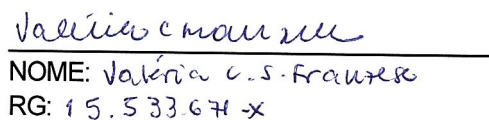 NOME: Valéria C. S. Franzese
RG: 15.533.671-X